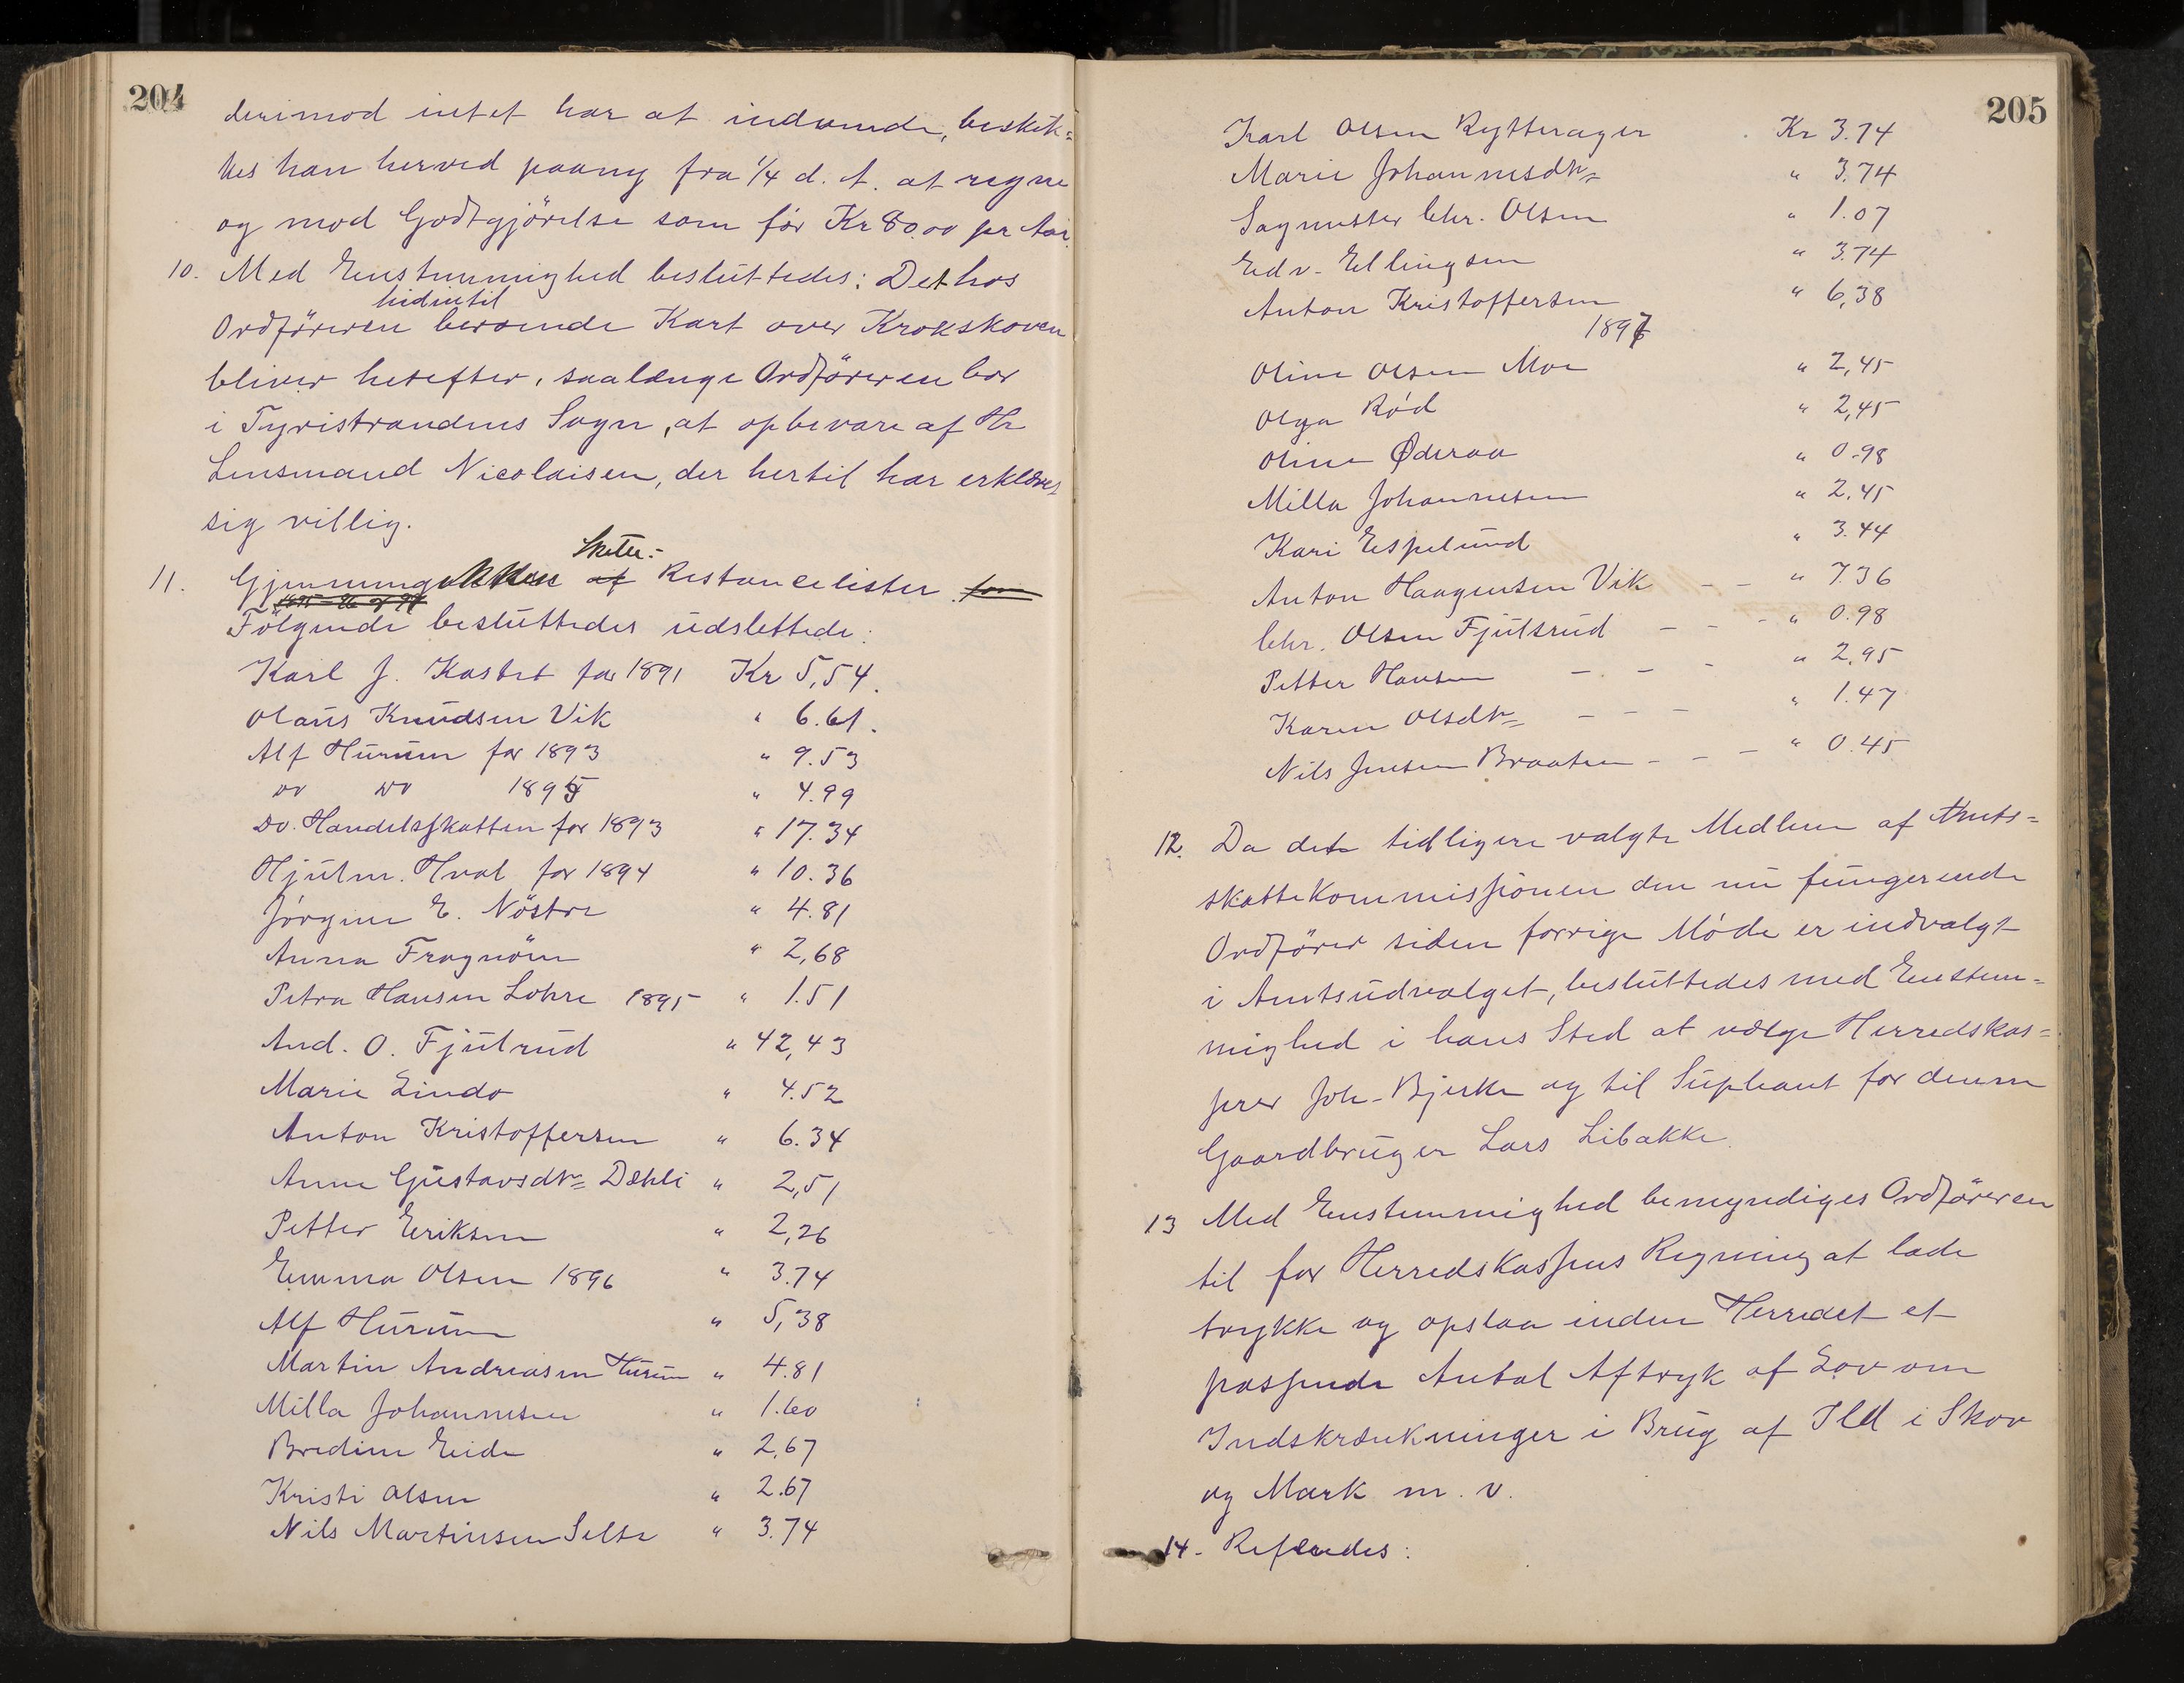 204
derimod intet har at indvende, beskik-
kes han herved paany fra 1/4 d. A. at regne
og mod Godtgjörelse som för Kr 80.00 pr Aar.
10. Med Enstemmighed besluttedes: Det hos
hidintil
Ordföreren beroende Kart over Krokskoven
bliver herefter, saalænge Ordföreren bor
i Tyristrandens Sogn, at opbevare af Hr
Lensmand Nicolaisen, der hertil har erklæret
sig villig.
Skatte-
11. Gjennemgikkes af Restancelister for
1895-96 og 97
Fölgende besluttedes udslettede:
Karl J. Kastet for 1891 Kr 5,54.
Olaus Knudsen Vik " 6.61.
Alf Hurum for 1893 " 9.53
Do Do 1895 " 4.99
Do. Handelsskatten for 1893 " 17.34
Hjulm. Hval for 1894 " 10.36
Jörgine E. Nöstre " 4.81
Anna Fragnöm " 2,68
Petra Hansen Lohre 1895 " 1.51
And. O. Fjulrud " 42,43
Marie Lindo " 4.52
Anton Kristoffersen " 6.34
Anne Gustavsdtr= Dæhli " 2,51
Petter Eriksen " 2,26
Emma Olsen 1896 " 3.74
Alf Hurum " 5,38
Martin Andreasen Hurum " 4.81
Milla Johannesen " 1.60
Bredine Eide " 2,67
Kristi Olsen " 2.67
Nils Martinsen Selte " 3.74
205
Karl Olsen Rytterager Kr 3.74
Marie Johannesdtr= " 3.74
Sagmester Chr. Olsen " 1.07
Edv. Ellingsen " 3.74
Anton Kristoffersen " 6,38
1897
Oline Olsen Moe " 2,45
Olga Röd " 2,45
Oline Øderaa " 0.98
Milla Johannesen " 2.45
Kari Espelund " 3.44
Anton Haagensen Vik - - " 7.36
Chr. Olsen Fjulsrud - - - " 0.98
Petter Hansen - - - " 2,95
Karen Olsdtr= - - - " 1.47
Nils Jensen Braaten - - - " 0.45
12. Da det tidligere valgte Medlem af Amts-
skattekommissionen den nu fungerende
Ordförer siden forrige Möde er indvalgt
i Amtsudvalget, besluttedes med Enstem-
mighed i hans Sted at vælge Herredskas-
serer Joh. Bjerke og til Supleant for denne
Gaardbruger Lars Libakke.
13 Med Enstemmighed bemyndiges Ordföreren
til for Herredskassens Regning at lade
trykke og opslaa inden Herredet et
passende Antal Aftryk af Lov om
Indskrænkninger i Brug af Ild i Skov
og Mark m. v.
14. Refereredes: